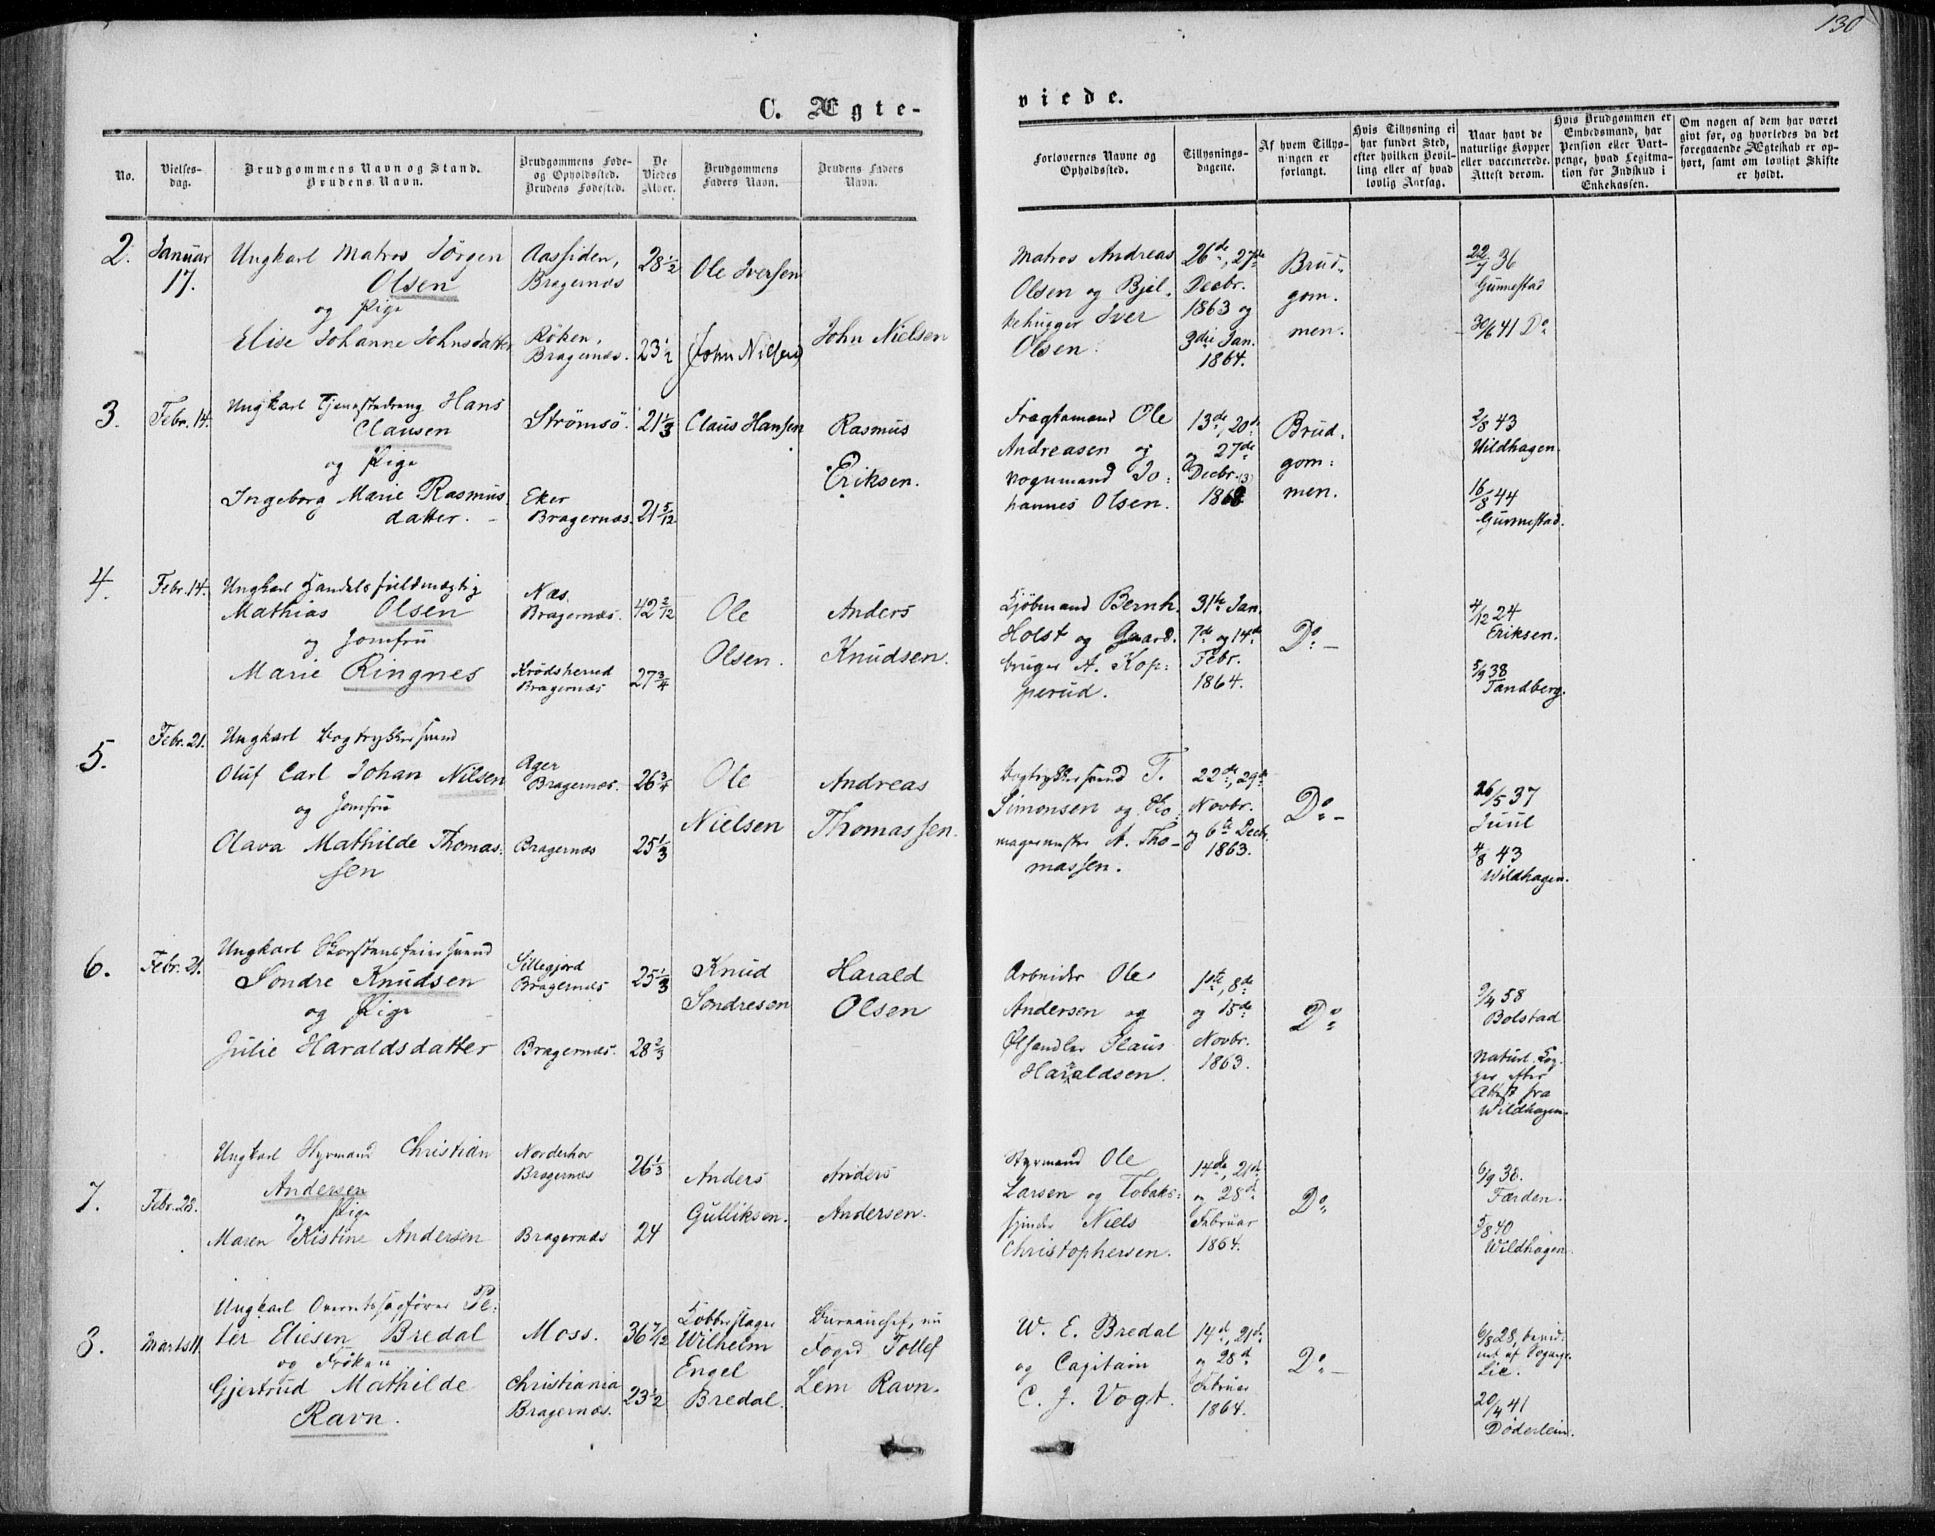 130
C. Ægte-
viede.
No.
Vielses-
dag.
Brudgommens Navn og Stand.
Brudens Navn.
Brudgommens Føde-
og Opholdssted.
Brudens Fødested.
De
Viedes
Alder.
Brudgommens
Faders Navn.
Brudens Faders
Navn.
Forlovernes Navne og
Opholdssted.
Tillysnings-
dagene.
Af hvem Tillys-
ningen er
forlangt.
Hvis Tillysning ei
har fundet Sted,
efter hvilken Bevil-
ling eller af hvad
lovlig Aarsag.
Naar havt de
naturlige Kopper
eller vaccinerede.
Attest derom.
Hvis Brudgommen er
Embedsmand, har
Pension eller Vart-
penge, hvad Legitima-
tion for Indskud i
Enkekassen.
Om nogen af dem har været
gift før, og hvorledes da det
foregaaende Ægteskab er op-
hørt, samt om lovligt Skifte
er holdt.
2.
Januar
17.
Ungkarl Matros Jörgen
Olsen
og Pige
Elise Johanne Johnsdatter
Aassiden,
Bragernæs
Röken,
Bragernæs.
28 1/2
23 1/2
Ole Iversen
(John Nilsen)
John Nielsen
Matros Andreas
Olsen og Bjel-
kehugger Iver
Olsen.
26de, 27de
Decbr.
1863 og
3die Jan.
1864.
Brud-
gom-
men.
22/7 36
Gunnestad
30/6 41 Do
3.
Febr. 14.
Ungkarl Tjenestedreng Hans
Clausen
og Pige
Ingeborg Marie Rasmus-
datter.
Strömsö.
Eker
Bragernæs.
21 1/3
21 5/12
Claus Hansen
Rasmus
Eriksen.
Fragtemand Ole
Andreasen og
Vognmand Jo-
hannes Olsen.
13de, 20de
og 27de
Decbr.
1863
Brud-
gom-
men.
2/8 43
Wildhagen.
16/8 44
Gunnestad.
4.
Febr. 14.
Ungkarl Handelsfuldmægtig
Mathias Olsen
og Jomfru
Marie Ringnes
Næs.
Bragernæs.
Krödsherred
Bragernæs
42 2/12
27 3/4
Ole
Olsen.
Anders
Knudsen.
Kjöbmand Bernh.
Holst og Gaard-
bruger A. Kop-
perud.
31te Jan.
7de og 14de
Febr.
1864.
Do -
4/12 24
Eriksen.
5/9 38
Tandberg.
5.
Febr. 21.
Ungkarl Bogtrykkersvend
Oluf Carl Johan Nilsen
og Jomfru
Olava Mathilde Thomas-
sen
Ager
Bragernæs.
Bragernæs
26 3/4
25 1/3
Ole
Nielsen
Andreas
Thomassen.
Bogtrykkersvend T.
Simonsen og Sko-
magermester A. Tho-
massen.
22de, 29de
Novbr.
og 6te Decbr.
1863.
Do -
26/5 37
Juul
4/8 43
Wildhagen.
6.
Febr. 21.
Ungkarl Skorstensfeiersvend
Söndre Knudsen
og Pige
Julie Haraldsdatter
Sillegjord
Bragernæs
Bragernæs.
25 1/3
28 2/3
Knud
Söndresen
Harald
Olsen
Arbeider Ole
Andersen og
Ölhandler Claus
Haraldsen.
1ste, 8de
og 15de
Novbr.
1863.
Do
9/4 58
Bolstad
Naturl. Kop-
per efter
Attest fra
Wildhagen.
7.
Febr. 28.
Ungkarl Styrmand Christian
Andersen
og Pige
Maren Kistine Andersen
Norderhov
Bragernæs
Bragernæs
26 1/3
24
Anders
Gulliksen.
Anders
Andersen.
Styrmand Ole
Larsen og Tobaks-
spinder Niels
Christophersen.
14de, 21de
og 28de
Februar
1864.
Do
6/9 38.
Færden.
5/8 40
Wildhagen.
8.
Marts 11.
Ungkarl Overretssagförer Pe-
ter Eliesen Bredal
og Fröken
Gjertrud Mathilde
Ravn.
Moss.
Christiania
Bragernæs.
36 7/12
23 1/2
Kobberslager
Wilhelm
Engel
Bredal.
Bureauchef, nu
Foged Tollef
Lem Ravn.
W. E. Bredal
og Capitain
C. J. Vogt.
14d, 21de
og 28d
Februar
1864.
Do -
6/8 28,
Lie.
20/4 41
Döderlein.